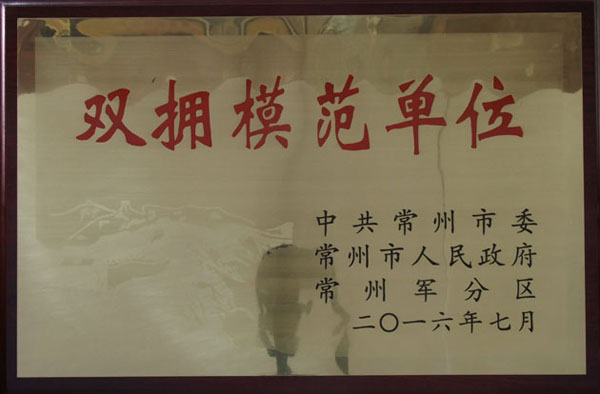 双拥模范单位
中共常州市委
常州市人民政府
常州军分区
二〇一六年七月